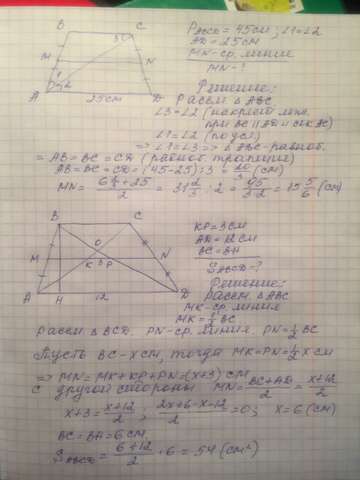 B C
P_ABCD = 45см; ∠1=∠2
AD = 25см
MN-ср. линия
MN-?
M N
A 25см D
Решение:
Рассм. △ABC
∠3=∠2 (накрест леж.
при BC || AD и сек AC)
∠1=∠2 (по усл)
⇒ ∠1=∠3 ⇒ △ABC-равноб.
⇒ AB=BC=CD (равноб. трапеция)
AB=BC=CD=(45-25):3 = 20/3 (см)
MN =
B C
O
M K 3 P N
A H 12 D
KP=3см
AD=12см
BC=BH
S_ABCD-?
Решение:
Рассм. △ABC
MK-ср. линия
MK=½BC
Рассм △BCD. PN-ср. линия. PN=½BC
Пусть BC-x см, тогда MK=PN=½x см
⇒ MN=MK+KP+PN=(x+3)см
С другой стороны MN = (BC+AD)/2 = (x+12)/2
x+3 = (x+12)/2; (2x+6-x-12)/2 = 0; x=6 (см)
BC=BH=6см
S_ABCD = (6+12)/2 · 6 = 54 (см²)